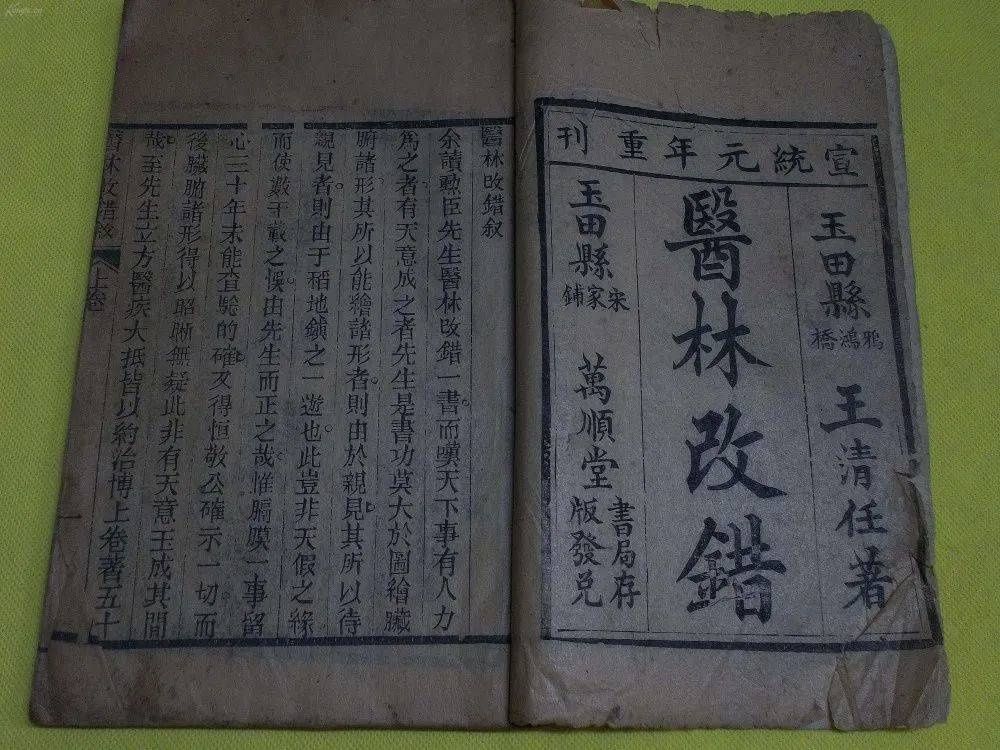 宣統元年重刊
玉田縣鴉鴻橋王清任著
醫林改錯
玉田縣宋家鋪萬順堂書局存版發兌
醫林改錯叙
余讀勲臣先生醫林改錯一書而嘆天下事有人力
爲之者有天意成之者先生是書功莫大於圖繪臟
腑諸形其所以能繪諸形者則由於親見其所以待
親見者則由于稻地鎮之一遊也此豈非天假之緣
而使數千載之悞由先生而正之哉惟膈膜一事留
心三十年未能查騐的確又得恒敬公確示一切而
後臟腑諸形得以昭晰無疑此非有天意王成其間
哉至先生立方醫疾大抵皆以約治博上卷著五十
醫林改錯叙 上卷 一